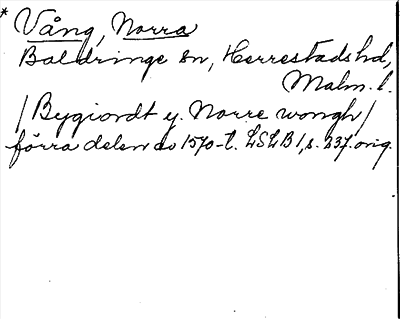 * Vång, Norra
Baldringe sn, Herrestads hd,
Malm. l.
/Bygiordt y. Norre wongh/
förra delen av 1570-t. LSLB 1, s. 237. orig.